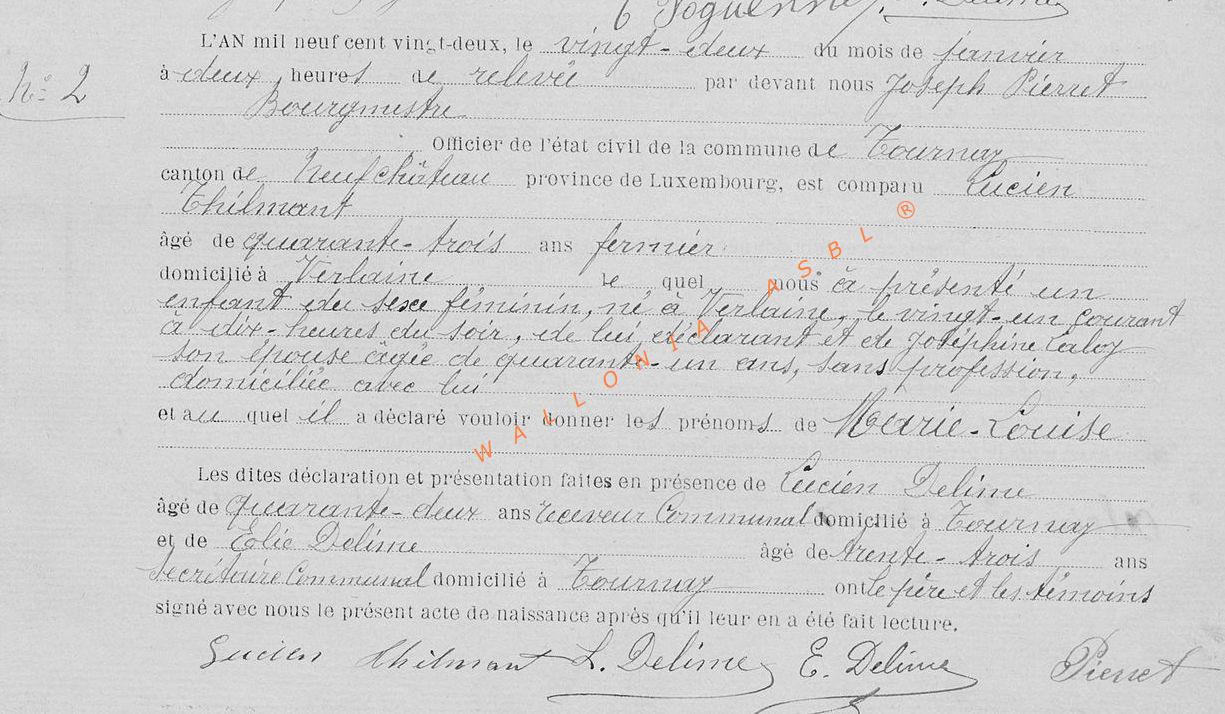 L'AN mil neuf cent vingt-deux, le vingt-deux du mois de janvier
N° 2
à deux heures de relevée par devant nous Joseph Pierret
Bourgmestre
Officier de l'état civil de la commune de Tournay
canton de Neufchâteau province de Luxembourg, est comparu Lucien
Thilmant
âgé de quarante-trois ans fermier
domicilié à Verlaine le quel nous à présenté un
enfant du sexe féminin, né à Verlaine, le vingt-un courant
à dix-heures du soir, de lui déclarant et de Joséphine Laloy
son épouse âgée de quarante-un ans, sans profession,
domiciliée avec lui
et au quel il a déclaré vouloir donner les prénoms de Marie-Louise
Les dites déclaration et présentation faites en présence de Lucien Delime
âgé de quarante-deux ans receveur Communal domicilié à Tournay
et de Elie Delime âgé de trente-trois ans
secrétaire Communal domicilié à Tournay ont le père et les témoins
signé avec nous le présent acte de naissance après qu'il leur en a été fait lecture.
Lucien Thilmant L. Delime E. Delime Pierret
WALLONIA ASBL ®